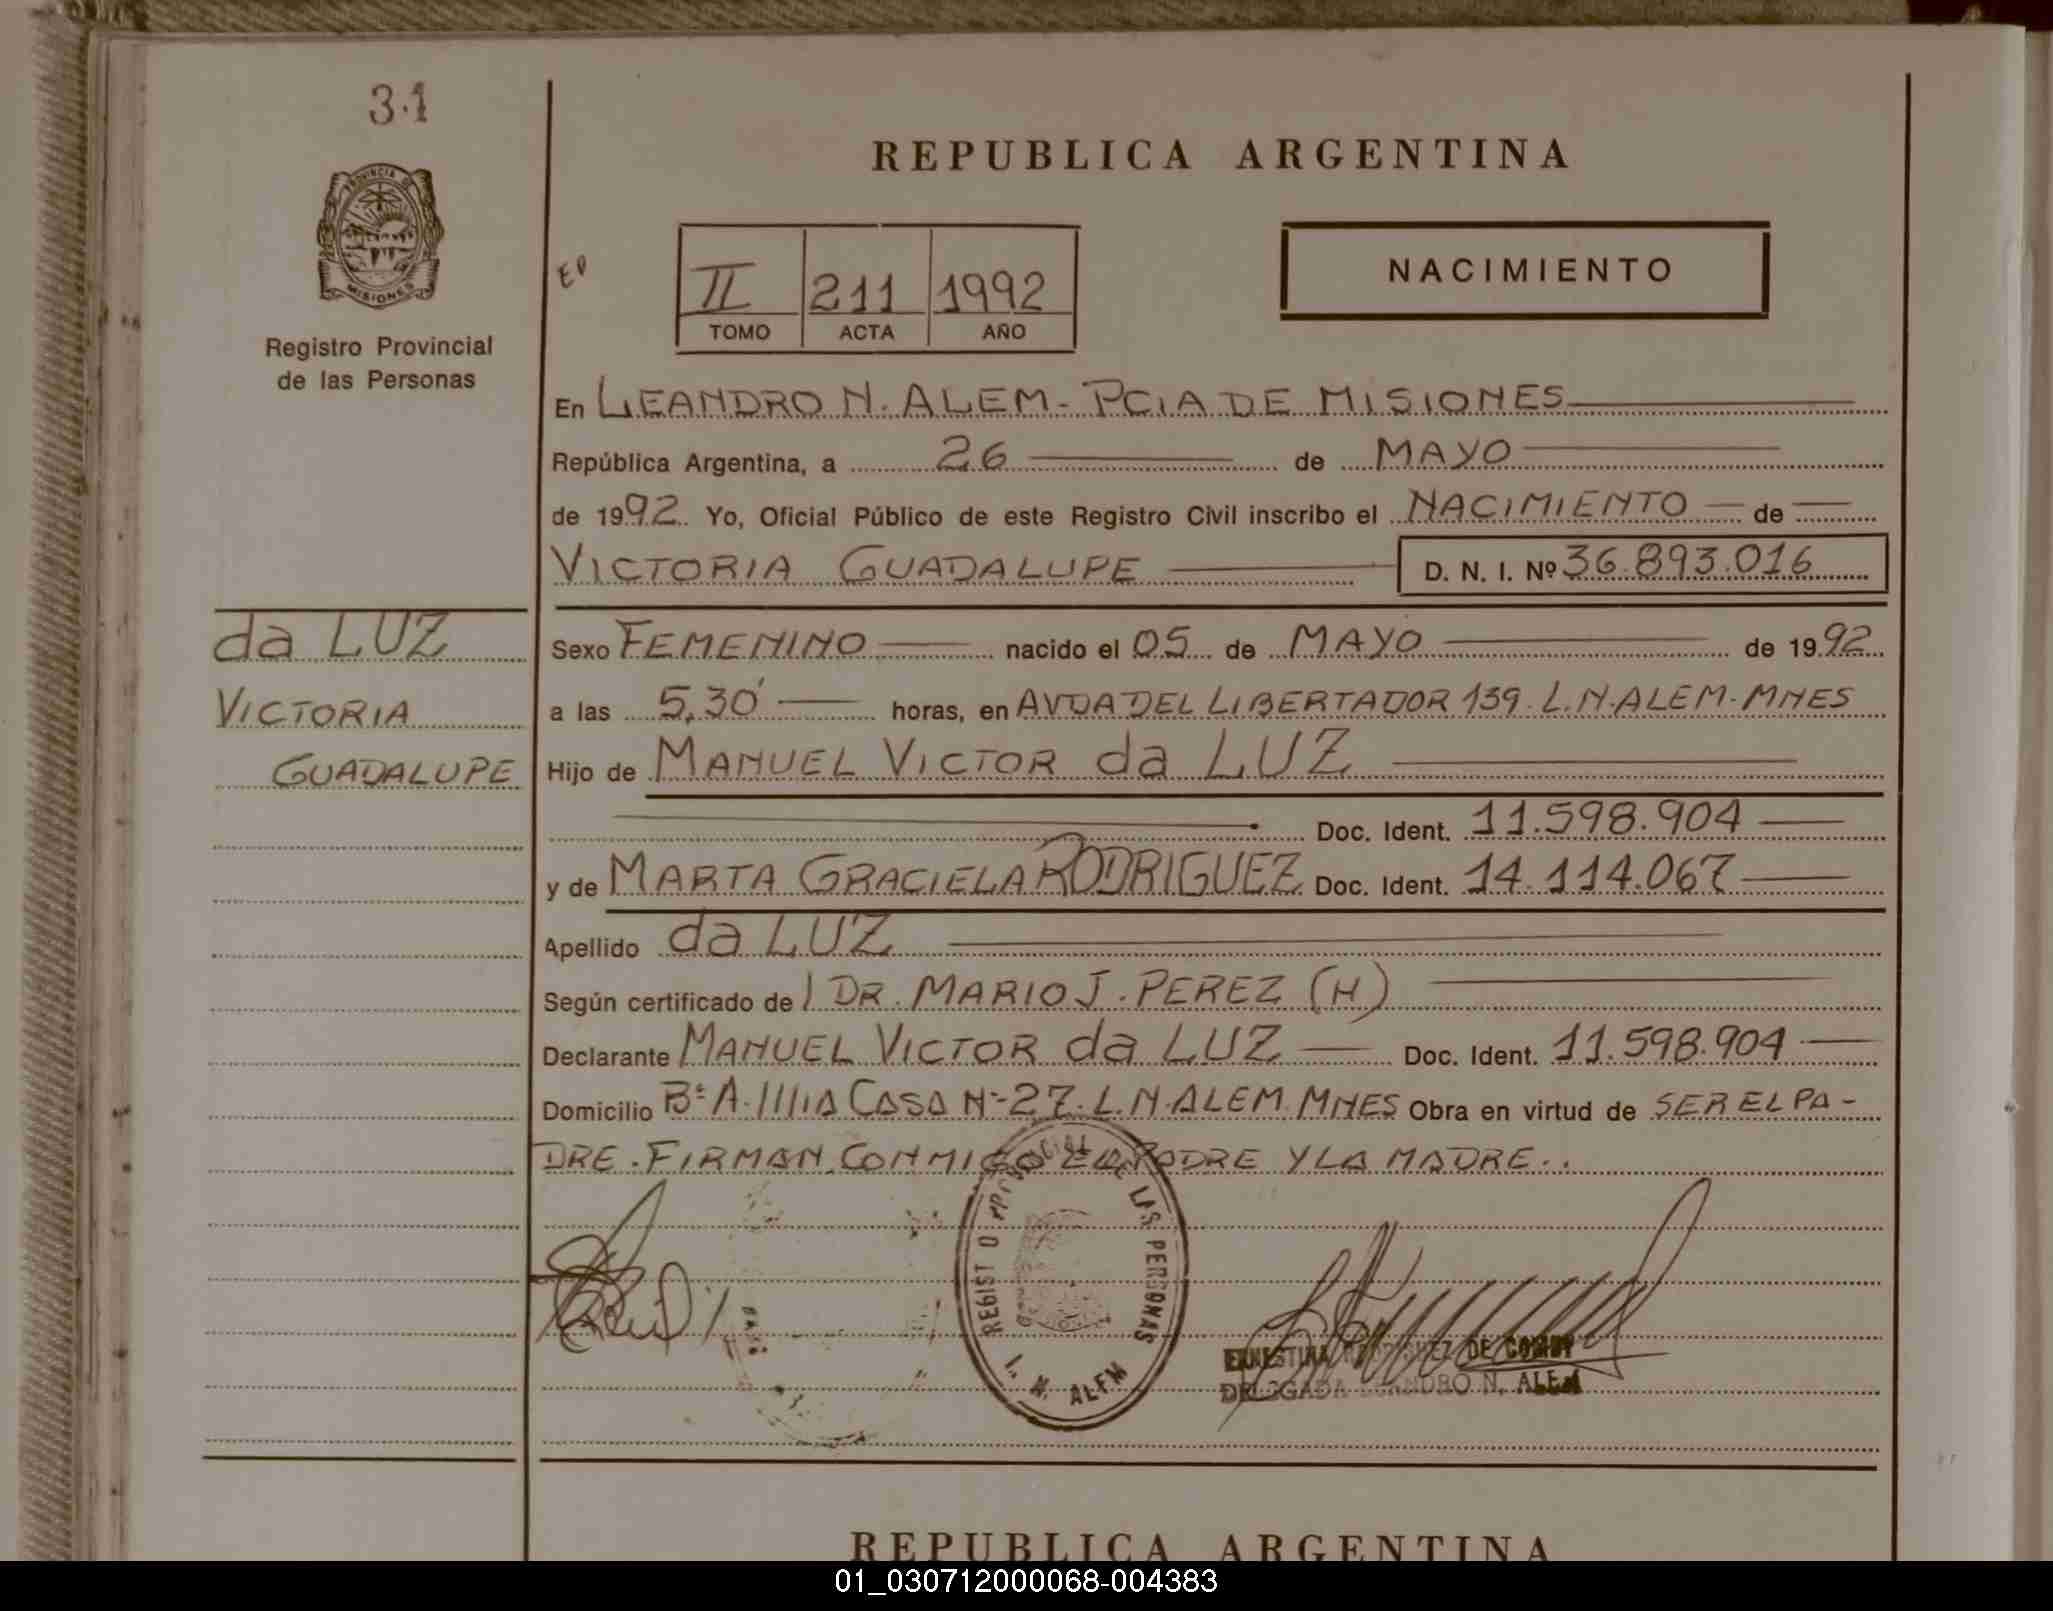 31
REPUBLICA ARGENTINA
PROVINCIA DE
MISIONES
Registro Provincial
de las Personas
II 211 1992
TOMO ACTA AÑO
NACIMIENTO
En LEANDRO N. ALEM - PCIA DE MISIONES
República Argentina, a 26 de MAYO
de 1992 Yo, Oficial Público de este Registro Civil inscribo el NACIMIENTO de
VICTORIA GUADALUPE D. N. I. Nº 36.893.016
da LUZ
VICTORIA
GUADALUPE
Sexo FEMENINO nacido el 05 de MAYO de 1992
a las 5,30 horas, en AVDA DEL LIBERTADOR 139. L.N.ALEM-MNES
Hijo de MANUEL VICTOR da LUZ
Doc. Ident. 11.598.904
y de MARTA GRACIELA RODRIGUEZ Doc. Ident. 14.114.067
Apellido da LUZ
Según certificado de DR. MARIO J. PEREZ (H)
Declarante MANUEL VICTOR da LUZ Doc. Ident. 11.598.904
Domicilio Bº A. Illia CASA Nº 27. L.N.ALEM. MNES Obra en virtud de SER EL PA-
DRE. FIRMAN CONMIGO EL PADRE Y LA MADRE..
REGIST O PROVINCIAL DE LAS PERSONAS
L. N. ALEM
ERNESTINA RODRIGUEZ DE
DELEGADA LEANDRO N. ALEM
REPUBLICA ARGENTINA
01_030712000068-004383